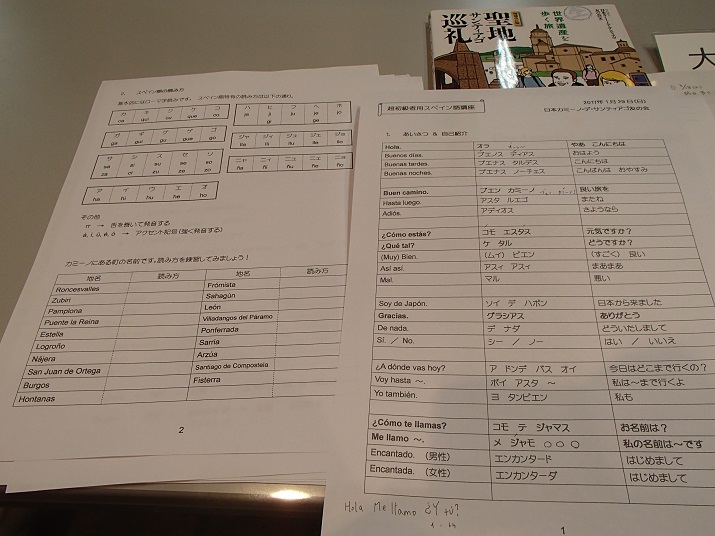 世界遺産を
歩く旅
聖地
サンティアゴ
巡礼
大
2. スペイン語の読み方
基本的にはローマ字読みです。スペイン語特有の読み方は以下の通り。
カ キ ク ケ コ
ca qui cu que co
ハ ヒ フ ヘ ホ
ja ji ju je jo
gi ge
ガ ギ グ ゲ ゴ
ga gui gu gue go
サ シ ス セ ソ
sa si su se so
za zo
ア イ ウ エ オ
ha hi hu he ho
その他
rr → 舌を巻いて発音する
á, í, ú, é, ó → アクセント記号(強く発音する)
カミーノにある町の名前です。読み方を練習してみましょう!
地名 読み方 地名 読み方
Roncesvalles Frómista
Zubiri Sahagún
Pamplona León
Puente la Reina Villadangos del Páramo
Estella Ponferrada
Logroño Sarria
Nájera Arzúa
San Juan de Ortega Santiago de Compostela
Burgos Fisterra
Hontanas
2
超初級者用スペイン語講座
2017年1月29日(日)
日本カミーノ・デ・サンティアゴ友の会
1. あいさつ & 自己紹介
Hola. オラ やあ こんにちは
Buenos días. ブエノス ディアス おはよう
Buenas tardes. ブエナス タルデス こんにちは
Buenas noches. ブエナス ノーチェス こんばんは おやすみ
Buen camino. ブエン カミーノ 良い旅を
Hasta luego. アスタ ルエゴ またね
Adiós. アディオス さようなら
¿Cómo estás? コモ エスタス 元気ですか?
¿Qué tal? ケ タル どうですか?
(Muy) Bien. (ムイ) ビエン (すごく) 良い
Así así. アスィ アスィ まあまあ
Mal. マル 悪い
Soy de Japón. ソイ デ ハポン 日本から来ました
Gracias. グラシアス ありがとう
De nada. デ ナダ どういたしまして
Sí. / No. シー / ノー はい / いいえ
¿A dónde vas hoy? ア ドンデ バス オイ 今日はどこまで行くの?
Voy hasta ~. ボイ アスタ ~ 私は~まで行くよ
Yo también. ヨ タンビエン 私も
¿Cómo te llamas? コモ テ ジャマス お名前は?
Me llamo ~. メ ジャモ ○○○ 私の名前は~です
Encantado. (男性) エンカンタード はじめまして
Encantada. (女性) エンカンターダ はじめまして
Hola Me llamo ¿Y tú?
1